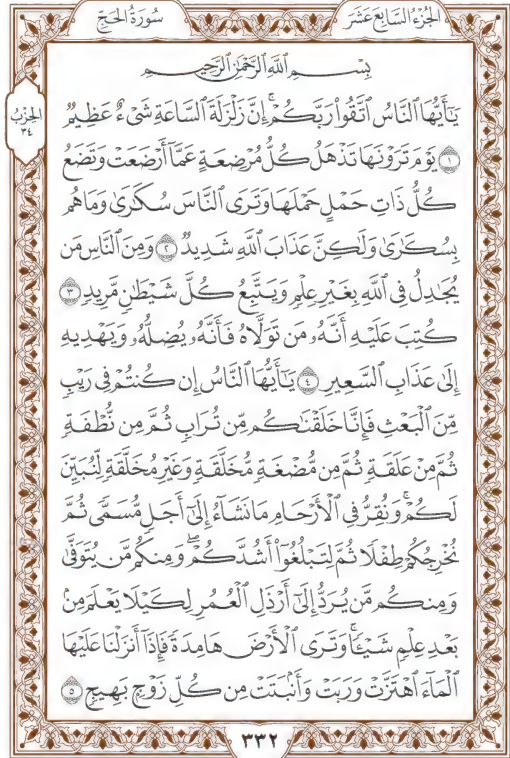 سُورَةُ الحَجِّ
الجُزْءُ السَّابِعَ عَشَرَ
بِسْمِ ٱللَّهِ ٱلرَّحْمَٰنِ ٱلرَّحِيمِ
الحِزْبُ
٣٤
يَٰٓأَيُّهَا ٱلنَّاسُ ٱتَّقُوا۟ رَبَّكُمْ ۚ إِنَّ زَلْزَلَةَ ٱلسَّاعَةِ شَىْءٌ عَظِيمٌ
١ يَوْمَ تَرَوْنَهَا تَذْهَلُ كُلُّ مُرْضِعَةٍ عَمَّآ أَرْضَعَتْ وَتَضَعُ
كُلُّ ذَاتِ حَمْلٍ حَمْلَهَا وَتَرَى ٱلنَّاسَ سُكَٰرَىٰ وَمَا هُم
بِسُكَٰرَىٰ وَلَٰكِنَّ عَذَابَ ٱللَّهِ شَدِيدٌ ٢ وَمِنَ ٱلنَّاسِ مَن
يُجَٰدِلُ فِى ٱللَّهِ بِغَيْرِ عِلْمٍ وَيَتَّبِعُ كُلَّ شَيْطَٰنٍ مَّرِيدٍ ٣
كُتِبَ عَلَيْهِ أَنَّهُۥ مَن تَوَلَّاهُ فَأَنَّهُۥ يُضِلُّهُۥ وَيَهْدِيهِ
إِلَىٰ عَذَابِ ٱلسَّعِيرِ ٤ يَٰٓأَيُّهَا ٱلنَّاسُ إِن كُنتُمْ فِى رَيْبٍ
مِّنَ ٱلْبَعْثِ فَإِنَّا خَلَقْنَٰكُم مِّن تُرَابٍ ثُمَّ مِن نُّطْفَةٍ
ثُمَّ مِنْ عَلَقَةٍ ثُمَّ مِن مُّضْغَةٍ مُّخَلَّقَةٍ وَغَيْرِ مُخَلَّقَةٍ لِّنُبَيِّنَ
لَكُمْ ۚ وَنُقِرُّ فِى ٱلْأَرْحَامِ مَا نَشَآءُ إِلَىٰٓ أَجَلٍ مُّسَمًّى ثُمَّ
نُخْرِجُكُمْ طِفْلًا ثُمَّ لِتَبْلُغُوٓا۟ أَشُدَّكُمْ ۖ وَمِنكُم مَّن يُتَوَفَّىٰ
وَمِنكُم مَّن يُرَدُّ إِلَىٰٓ أَرْذَلِ ٱلْعُمُرِ لِكَيْلَا يَعْلَمَ مِنۢ
بَعْدِ عِلْمٍ شَيْـًٔا ۚ وَتَرَى ٱلْأَرْضَ هَامِدَةً فَإِذَآ أَنزَلْنَا عَلَيْهَا
ٱلْمَآءَ ٱهْتَزَّتْ وَرَبَتْ وَأَنۢبَتَتْ مِن كُلِّ زَوْجٍۭ بَهِيجٍ ٥
٣٣٢